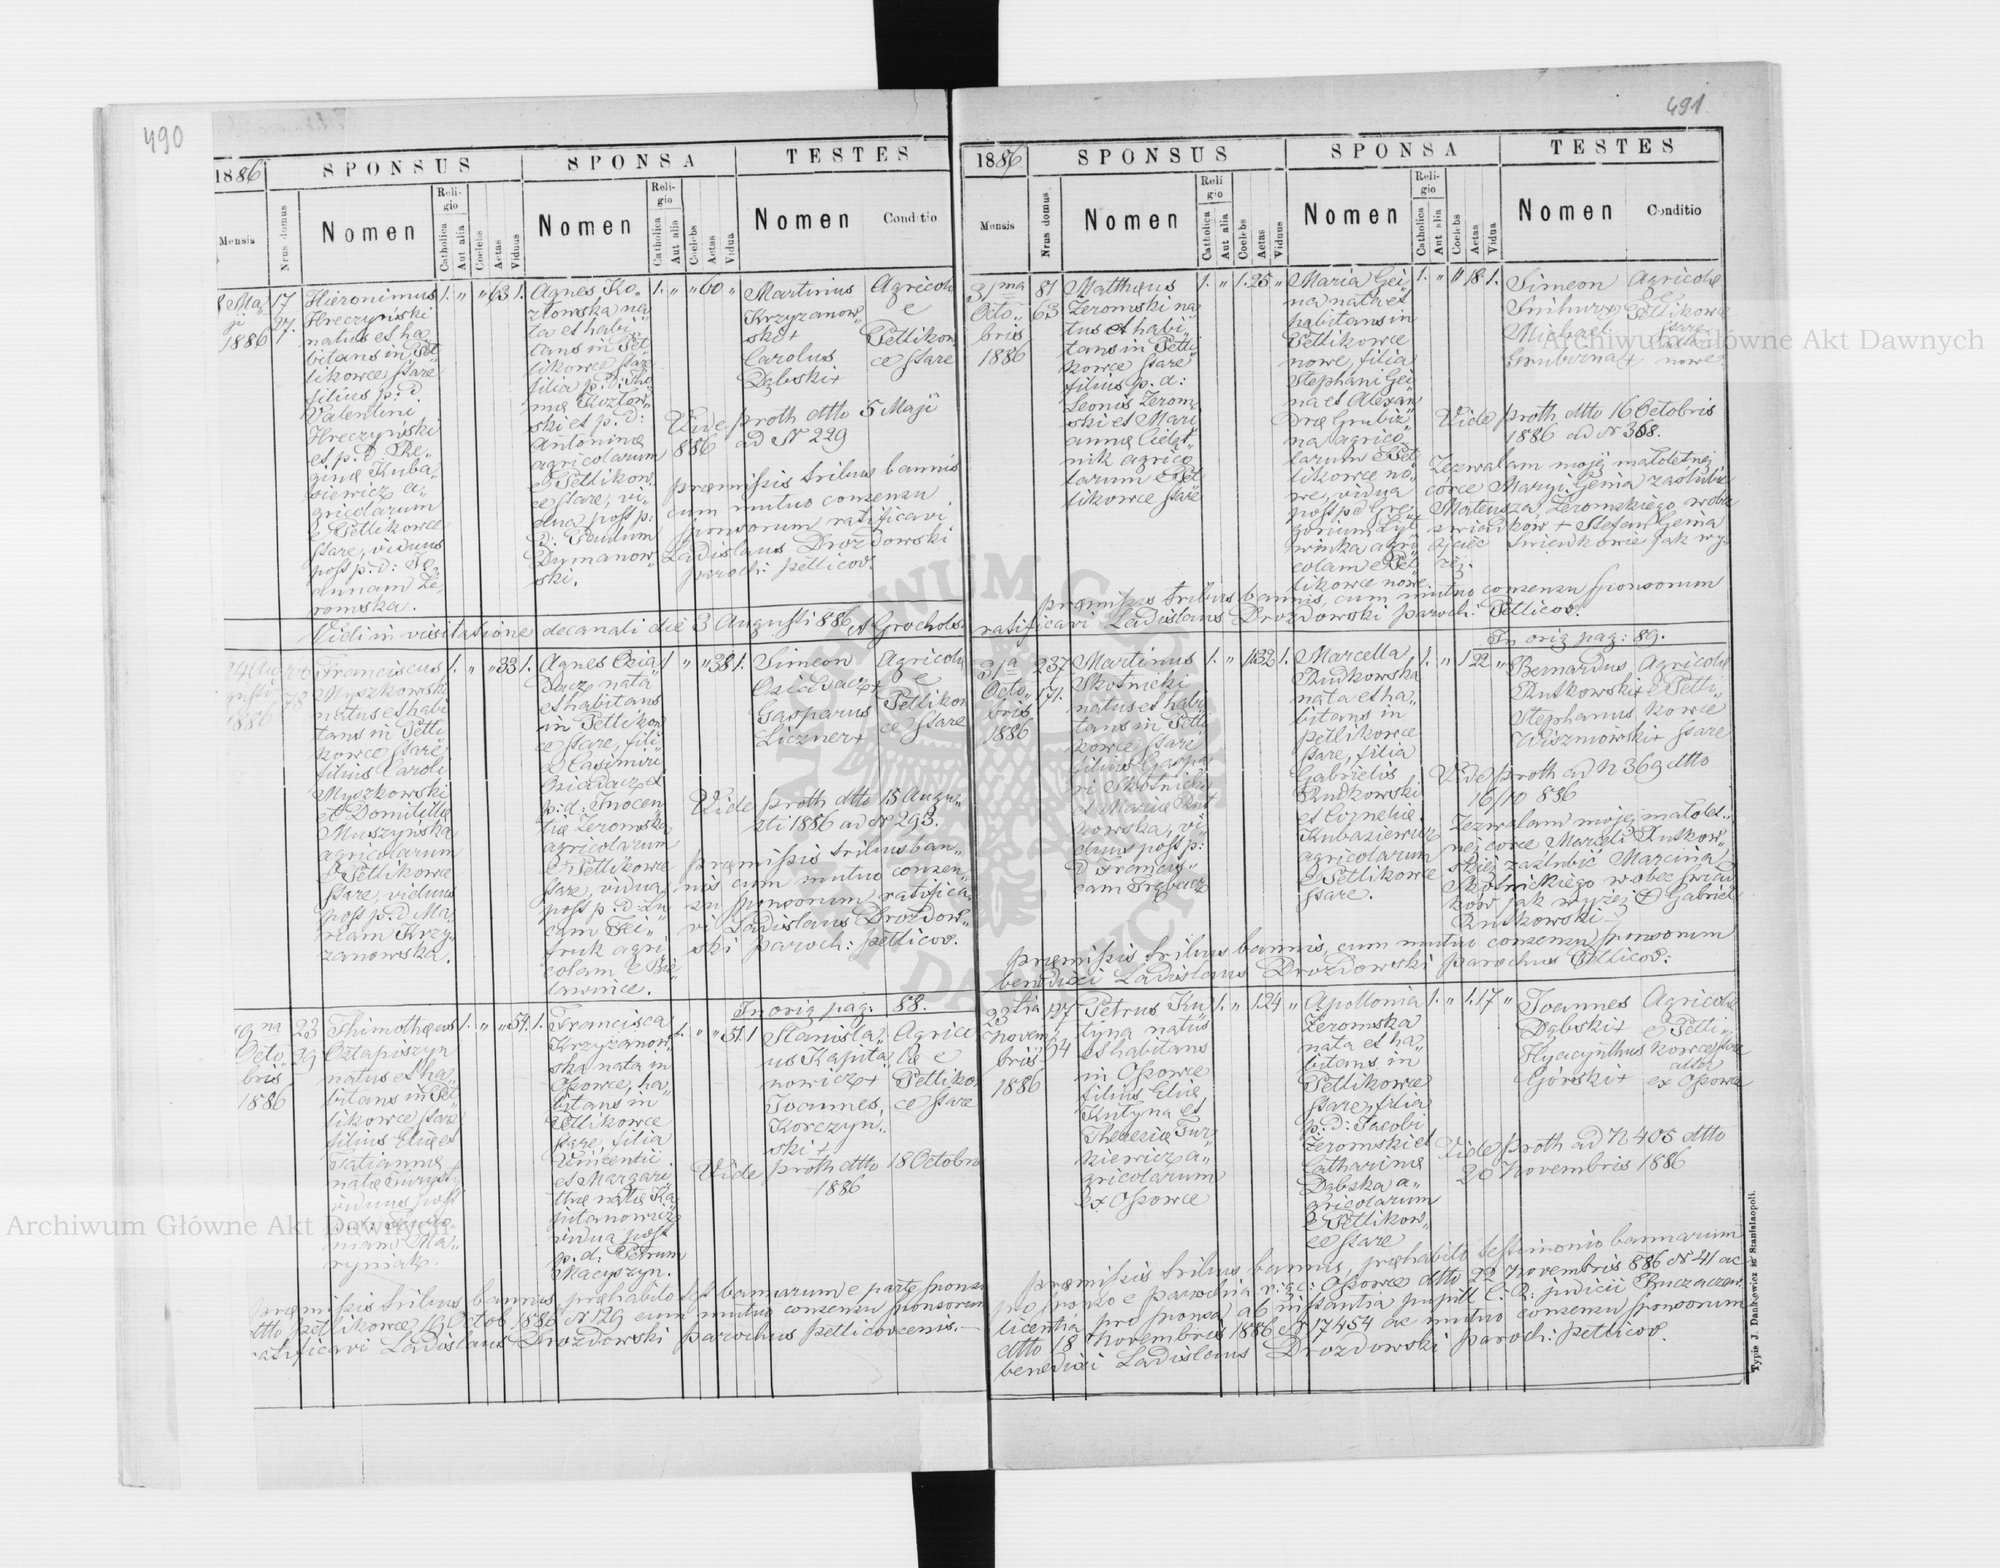 490
1886
SPONSUS
SPONSA
TESTES
Mensis
Nrus domus
Nomen
Religio
Catholica
Aut alia
Coelebs
Aetas
Viduus
Nomen
Religio
Catholica
Aut alia
Coelebs
Aetas
Vidua
Nomen
Conditio
8 Maj
ji
1886
17
27.
Hieronimus
Hreczyński
natus et ha
bitans in Pet
likowce stare
filius p: d
Valentini
Hreczyński
et p. d. Re„
ginæ Kuba„
siewicz a„
gricolarum
e Petlikowce
stare, viduus
post p: d: Jo„
annam Że„
romska.
1. „ „ 63 1.
Agnes Ko„
złowska na„
ta et habi„
tans in Pet
likowce stare
filia p: d: Tho„
mæ Kozłow„
ski et p: d:
Antoninæ
agricolarum
e Petlikow„
ce stare, vi„
dua post p:
d: Paulum
Dymanow„
ski.
1. „ „ 60 „
Martinus
Krzyżanow„
ski +
Carolus
Dąbski +
Agricolæ
e
Petlikow
ce stare
Vide proth dtto 5 Maji
886 ad N 229
præmissis tribus bannis
cum mutuo consensu
sponsorum ratificavi
Ladislaus Drozdowski
paroch: petlicov.
Vidi in visitatione decanali die 3 Augusti 886
24 Au
gusti
1886
78
Franciscus
Myszkowski
natus et habi
tans in Petli
kowce stare
filius Caroli
Myszkowski
et Domitillæ
Muszyńska
agricolarum
e Petlikowce
stare, viduus
post p: d Ma„
riam Krzy„
żanowska.
1. „ „ 33 1.
Agnes Osia
dacz nata
et habitans
in Petlikow
ce stare, fili
a Casimiri
Osiadacz et
p: d: Inocen
tiæ Żeromska
agricolarum
e Petlikowce
stare, vidua
post p: d: Lu
cam Fei„
truk agri
colam e Bie
lawince.
1 „ „ 38 1.
Simeon
Osiadacz +
Gasparus
Liczner +
Agricolæ
e
Petlikow
ce stare
Vide proth dtto 15 Augu„
sti 1886 ad N 293.
præmissis tribus ban„
nis cum mutuo consen„
su sponsorum ratifica„
vi Ladislaus Drozdow„
ski paroch: petlicov.
In orig pag: 88.
19 na
Octo
bris
1886
23
29
Thimothæus
Osztapiszyn
natus et ha„
bitans in Pet
likowce stare
filius Eliæ et
Tatiannæ
natæ
viduus post
Ma„
ryniak.
1. „ „ 54. 1.
Francisca
Krzyżanow„
ska nata in
Ossowce, ha„
bitans in
Petlikowce
stare, filia
Vincentii
et Margari
thæ natæ Ka
pitanowicz
vidua post
p: d: Petrum
Macyszyn.
1. „ „ 51. 1
Stanisla„
us Kapita„
nowicz +
Joannes
Korczyn„
ski +
Agrico
læ e
Petlikow
ce stare
Vide proth dtto 18 Octobris
1886
præmissis tribus bannis, præhabito test bannorum e parte sponsi
dtto petlikowce 19 Octob 1886 N 129 cum mutuo consensu sponsorum
ratificavi Ladislaus Drozdowski parochus petlicovcenis.
491
1886
SPONSUS
SPONSA
TESTES
Mensis
Nrus domus
Nomen
Religio
Catholica
Aut alia
Coelebs
Aetas
Viduus
Nomen
Religio
Catholica
Aut alia
Coelebs
Aetas
Vidua
Nomen
Conditio
31 ma
Octo„
bris
1886
81
63
Matthæus
Żeromski na
tus et habi„
tans in Petli
kowce stare
filius p. d:
Leonis Żerom„
ski et Mari
annæ Cielet„
nik agrico
larum e Pet
likowce stare
1. „ 1. 25 „
Maria Gei„
na nata et
habitans in
Petlikowce
nowe, filia
Stephani Gei„
na et Alexan
dræ Grubiź„
na agrico„
larum e Pet
likowce no„
we, vidua
post p d Gre„
gorium Lyt
winka agri
colam e Pet
likowce nowe.
1. „ „ 18 1.
Simeon
Michael
Grubizna +
Agricolæ
e
Petlikowce
stare
nowe
Vide proth dtto 16 Octobris
1886 ad N 368.
Zezwalam mojej małoletniej
córce Maryi Geina zaślubić
Mateusza Żeromskiego wobec
świadków + Stefan Geina
ojciec Świadkowie jak wy„
żej.
præmissis tribus bannis, cum mutuo consensu sponsorum
ratificavi Ladislaus Drozdowski paroch: Petlicov.
In orig pag: 89.
31 a
Octo„
bris
1886
237
171.
Martinus
Skotnicki
natus et habi
tans in Petli
kowce stare
filius Gaspa
ri Skotnicki
et Mariæ Rut
kowska, vi„
duus post p:
d Francis„
cam Trębacz
1. „ 1. 32 1.
Marcella
Rudkowska
nata et ha„
bitans in
petlikowce
stare, filia
Gabrielis
Rudkowski
et Corneliæ
Kubasiewicz
agricolarum
e Petlikowce
stare.
1. „ 1 22 „
Bernardus
Rutkowski +
Stephanus
Wiszniowski +
Agricolæ
e Petli„
kowce
stare
Vide proth ad N 369 dtto
16/10 886
Zezwalam mojej małolet„
niej córce Marceli Rutkow„
skiej zaślubić Marcina
Skotnickiego wobec świad
ków jak wyżej + Gabriel
Rutkowski
præmissis tribus bannis, cum mutuo consensu sponsorum
benedixi Ladislaus Drozdowski parochus Petlicov:
23 tia
Novem
bris
1886
197
94
Petrus Ku
tyna natus
et habitans
in Ossowce
filius Eliæ
Kutyna et
Theresiæ Tur„
kiewicz a„
gricolarum
ex Ossowce
1. „ 1. 24 „
Apollonia
Żeromska
nata et ha„
bitans in
Petlikowce
stare, filia
p: d: Jacobi
Żeromski et
Catharinæ
Dąbska a„
gricolarum
e Petlikow„
ce stare
1. „ 1. 17 „
Joannes
Dąbski +
Hyacynthus
Górski +
Agricolæ
e Petli„
kowce stare
alter
ex Ossowce
Vide proth ad N 405 dtto
20 Novembris 1886
præmissis tribus bannis, præhabito testimonio bannorum
pro sponso e parochia r: gr: c: Ossowce dtto 22 Novembris 886 N 41 ac
licentia pro sponsa ab instantia pupill C. R: judicii Buczaczen:
dtto 18 Novembris 1886 N 17454 ac mutuo consensu sponsorum
benedixi Ladislaus Drozdowski paroch: petlicov.
Typis J. Dankiewicz in Stanislaopoli.
Archiwum Główne Akt Dawnych
Archiwum Główne Akt Dawnych
ARCHIWUM GŁÓWNE AKT DAWNYCH